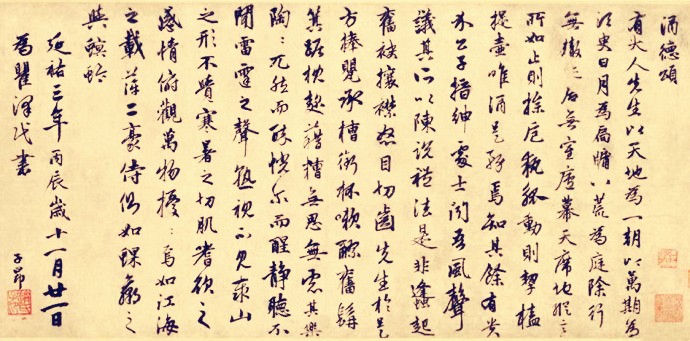 酒德頌
有大人先生以天地為一朝以萬期為
須臾日月為扃牖八荒為庭除行
無轍跡居無室廬幕天席地縱意
所如止則操卮執觚動則挈榼
提壺唯酒是務焉知其餘有貴
介公子搢紳處士聞吾風聲
議其所以陳說禮法是非蠭起
奮袂攘襟怒目切齒先生於是
方捧甖承槽銜杯漱醪奮髯
箕踞枕麴藉糟無思無慮其樂
陶〻兀然而醉恍尒而醒靜聽不
聞雷霆之聲熟視不見泰山
之形不覺寒暑之切肌嗜欲之
感情俯觀萬物擾〻焉如江海
之載萍二豪侍側如蜾蠃之
與螟蛉
延祐三年丙辰歲十一月廿一日
為瞿澤民書
子昂